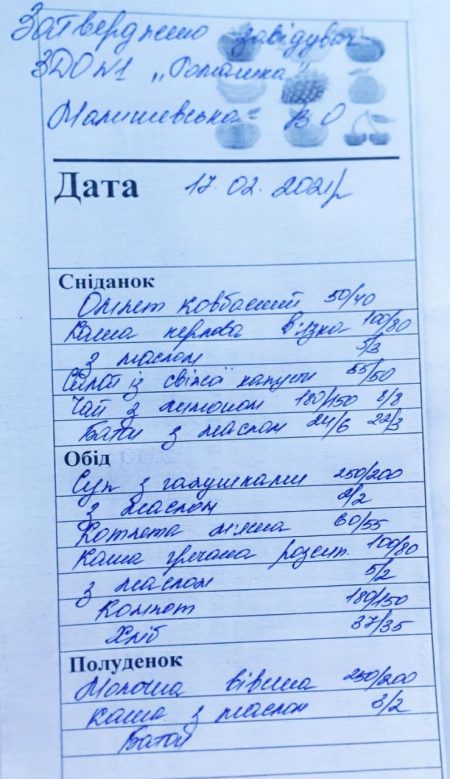 Затверджено завідувач
ЗДО №1 „Ромашка"
Малишевська В О
Дата 17. 02. 2021р
Сніданок
Омлет ковбасний 50/40
Каша перлова в'язка 100/80
з маслом 5/3
Салат із свіжої капусти 55/50
Чай з лимоном 180/150 8/8
Батон з маслом 24/6 22/3
Обід
Суп з галушками 250/200
з маслом 2/2
Котлета ніжна 60/55
Каша гречана розсип. 100/80
з маслом 5/2
Компот 180/150
Хліб 37/35
Полуденок
Молочна вівсяна 250/200
каша з маслом 3/2
Батон